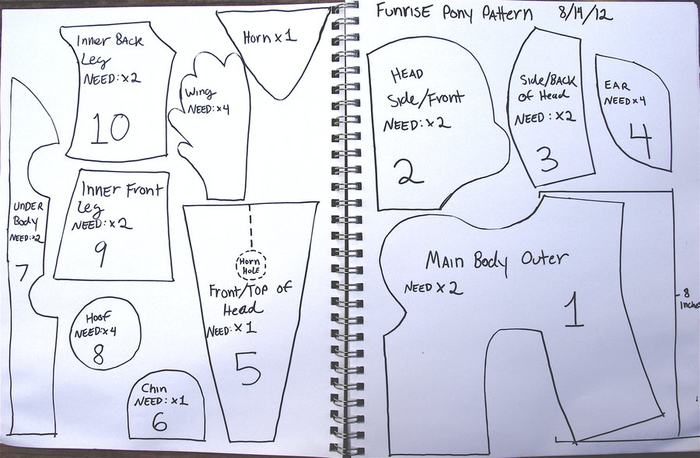 FUNRISE PONY PATTERN 8/14/12
Inner Back
Leg
NEED: x2
10
Wing
NEED: x4
Horn x 1
UNDER
Body
NEED: x2
7
Inner Front
Leg
NEED: x2
9
Hoof
NEED: x4
8
Chin
NEED: x1
6
Horn
Hole
Front/Top of
Head
NEED: x1
5
HEAD
Side/Front
NEED: x2
2
Side/Back
of Head
NEED: x2
3
EAR
NEED x4
4
MAIN Body Outer
NEED x 2
1
8